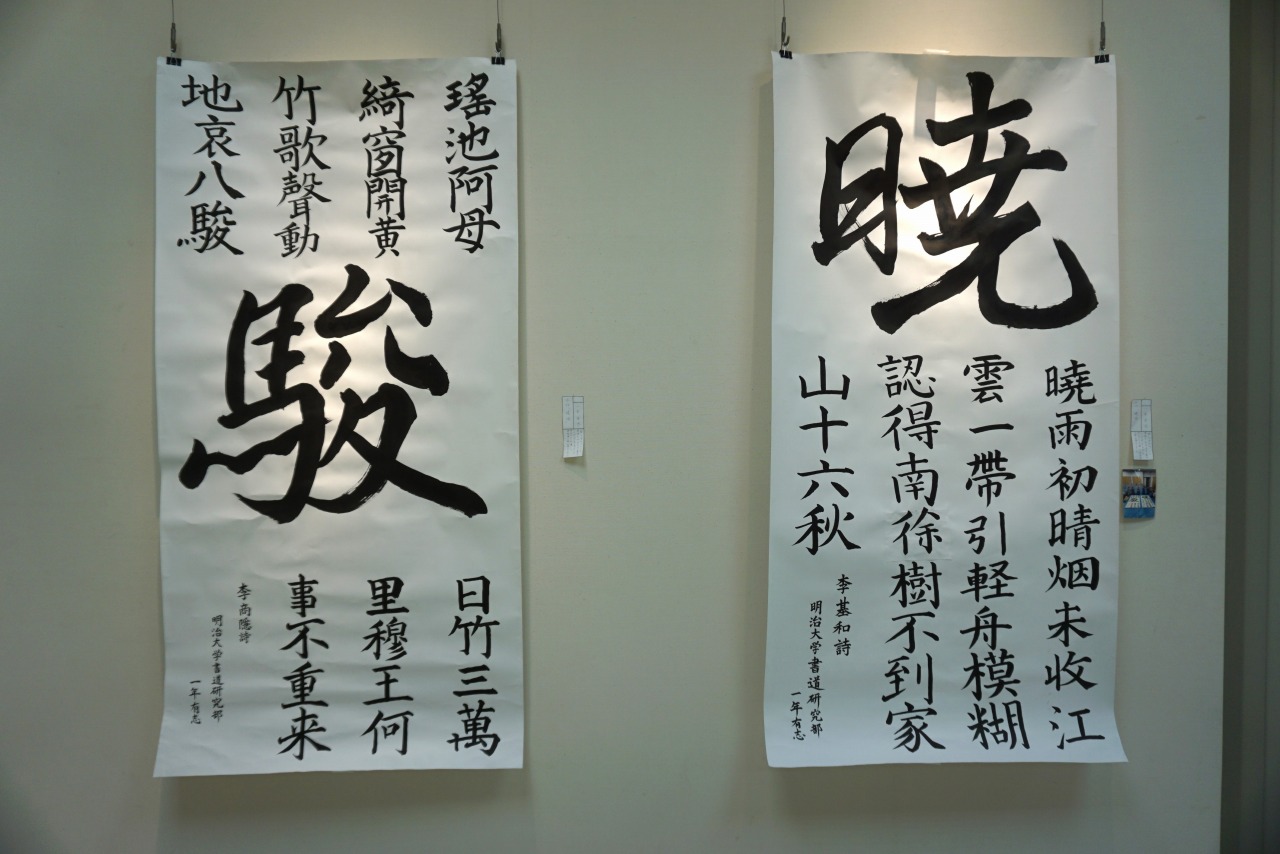 暁
暁雨初晴烟未收江
雲一帶引軽舟模糊
認得南徐樹不到家
山十六秋
李基和詩
明治大学書道研究部
一年有志
瑤池阿母
綺窗開黄
竹歌聲動
地哀八駿
駿
日竹三萬
里穆王何
事不重来
李商隠詩
明治大学書道研究部
一年有志